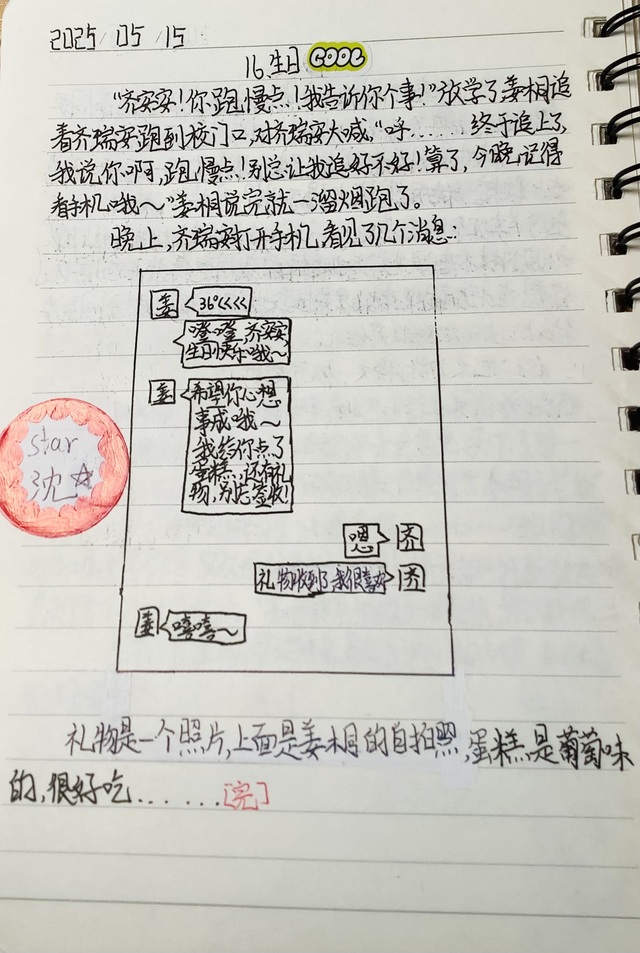 2025/05/15
16生日 COOL
“齐安安！你跑慢点！我告诉你个事！”放学了，姜相追
着齐瑞安跑到校门口，对齐瑞安大喊，“呼......终于追上了，
我说你啊，跑慢点！别总让我追好不好！算了，今晚记得
看手机哦～”姜相说完就一溜烟跑了。
晚上，齐瑞安打开手机，看见了几个消息：
姜
36°<<<<
噔噔，齐安安，
生日快乐哦～
姜
希望你心想
事成哦～
我给你点了
蛋糕，还有礼
物，别忘签收！
star
沈☆
嗯
齐
礼物收到了，我很喜欢
齐
姜
嘻嘻～
礼物是一个照片，上面是姜相的自拍照，蛋糕是葡萄味
的，很好吃......[完]